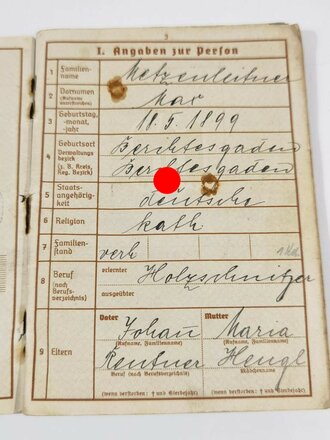 3
I. Angaben zur Person
1 Familien-name Metzenleitner
2 Vornamen (Rufname unterstreichen) Max
3 Geburtstag, -monat, -jahr 18. 5. 1899
4 Geburtsort Berchtesgaden
Verwaltungsbezirk (z. B. Kreis, Reg. Bezirk) Berchtesgaden
5 Staats-angehörig-keit deutsche
6 Religion kath
7 Familien-stand verh
8 Beruf (nach Berufs-verzeichnis) erlernter Holzschnitzer
ausgeübter
Vater Mutter
Johann Maria
(Rufname, Familienname) (Rufname, Familienname)
9 Eltern Rentner Hengl
Beruf (nach Berufsverzeichnis) Mädchenname
(wenn verstorben: † und Sterbejahr) (wenn verstorben: † und Sterbejahr)